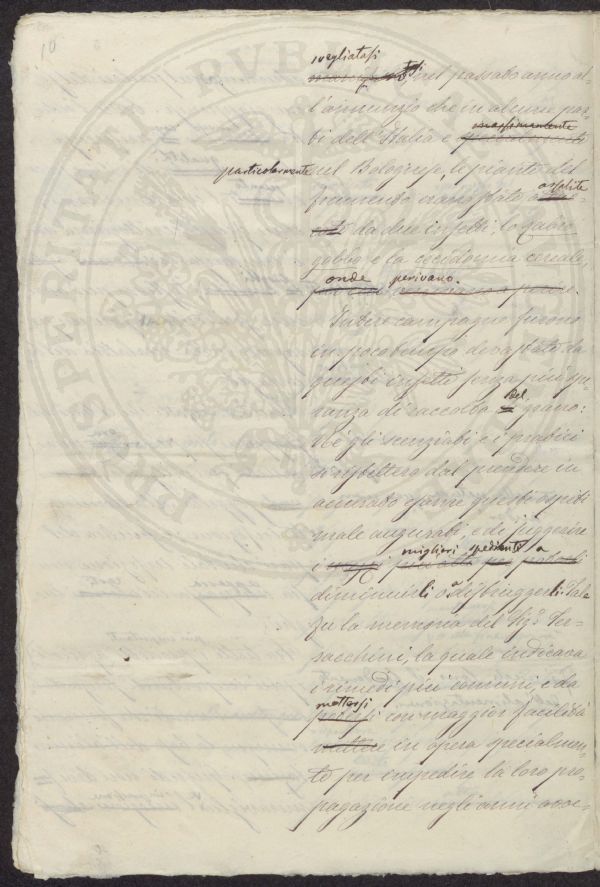 10
svegliatasi
nel passato anno al-
l'annunzio che in alcune par-
ti dell'Italia e massimamente
particolarmente nel Bolognese, le piante del
frumento erano state assalite
da due insetti, lo
gobbo e la cecidomia cereale,
onde perivano.
Intere campagne furono
in poco tempo devastate da
questi insetti senza più spe-
ranza di raccolta del grano:
Nè gli scienziati e i pratici
si ristettero dal prendere in
accurato esame questi ospiti
male augurati, e di suggerire
i migliori spedienti a
diminuirli o a distruggerli. Tale
fu la memoria del Sig.r Ter-
sacchini, la quale indicava
i rimedi più comuni, e da
mettersi con maggior facilità
in opera specialmen-
te per impedire la loro pro-
pagazione negli anni avve-
PROSPERITATI PVBLICAE